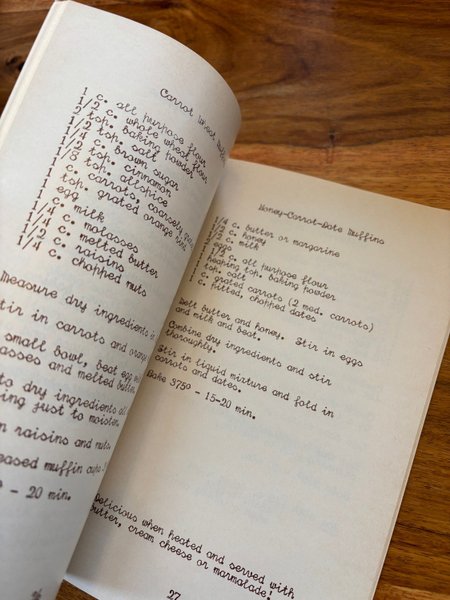 Carrot Wheat
1 c. all purpose flour
1/2 c. whole wheat flour
2 tsp. baking powder
1/2 tsp. salt
1/2 c. brown sugar
1/2 tsp. cinnamon
tsp. allspice
c. carrots, coarsely
tsp. grated orange rind
egg
c. milk
1/4 c. molasses
c. melted butter
1/2 c. raisins
1/4 c. chopped nuts
Measure dry ingredients
stir in carrots and orange
small bowl, beat egg
asses and melted butter
to dry ingredients
ing just to moisten
n raisins and nuts
eased muffin cups
- 20 min.
Honey-Carrot-Date Muffins
1/4 c. butter or margarine
honey
c. milk
eggs
c. all purpose flour
heaping tsp. baking powder
tsp. salt
c. grated carrots (2 med. carrots)
c. pitted, chopped dates
Melt butter and honey. Stir in eggs
and milk and beat.
Combine dry ingredients and stir
thoroughly.
Stir in liquid mixture and fold in
carrots and dates.
Bake 375° - 15-20 min.
Delicious when heated and served with
butter, cream cheese or marmalade!
27